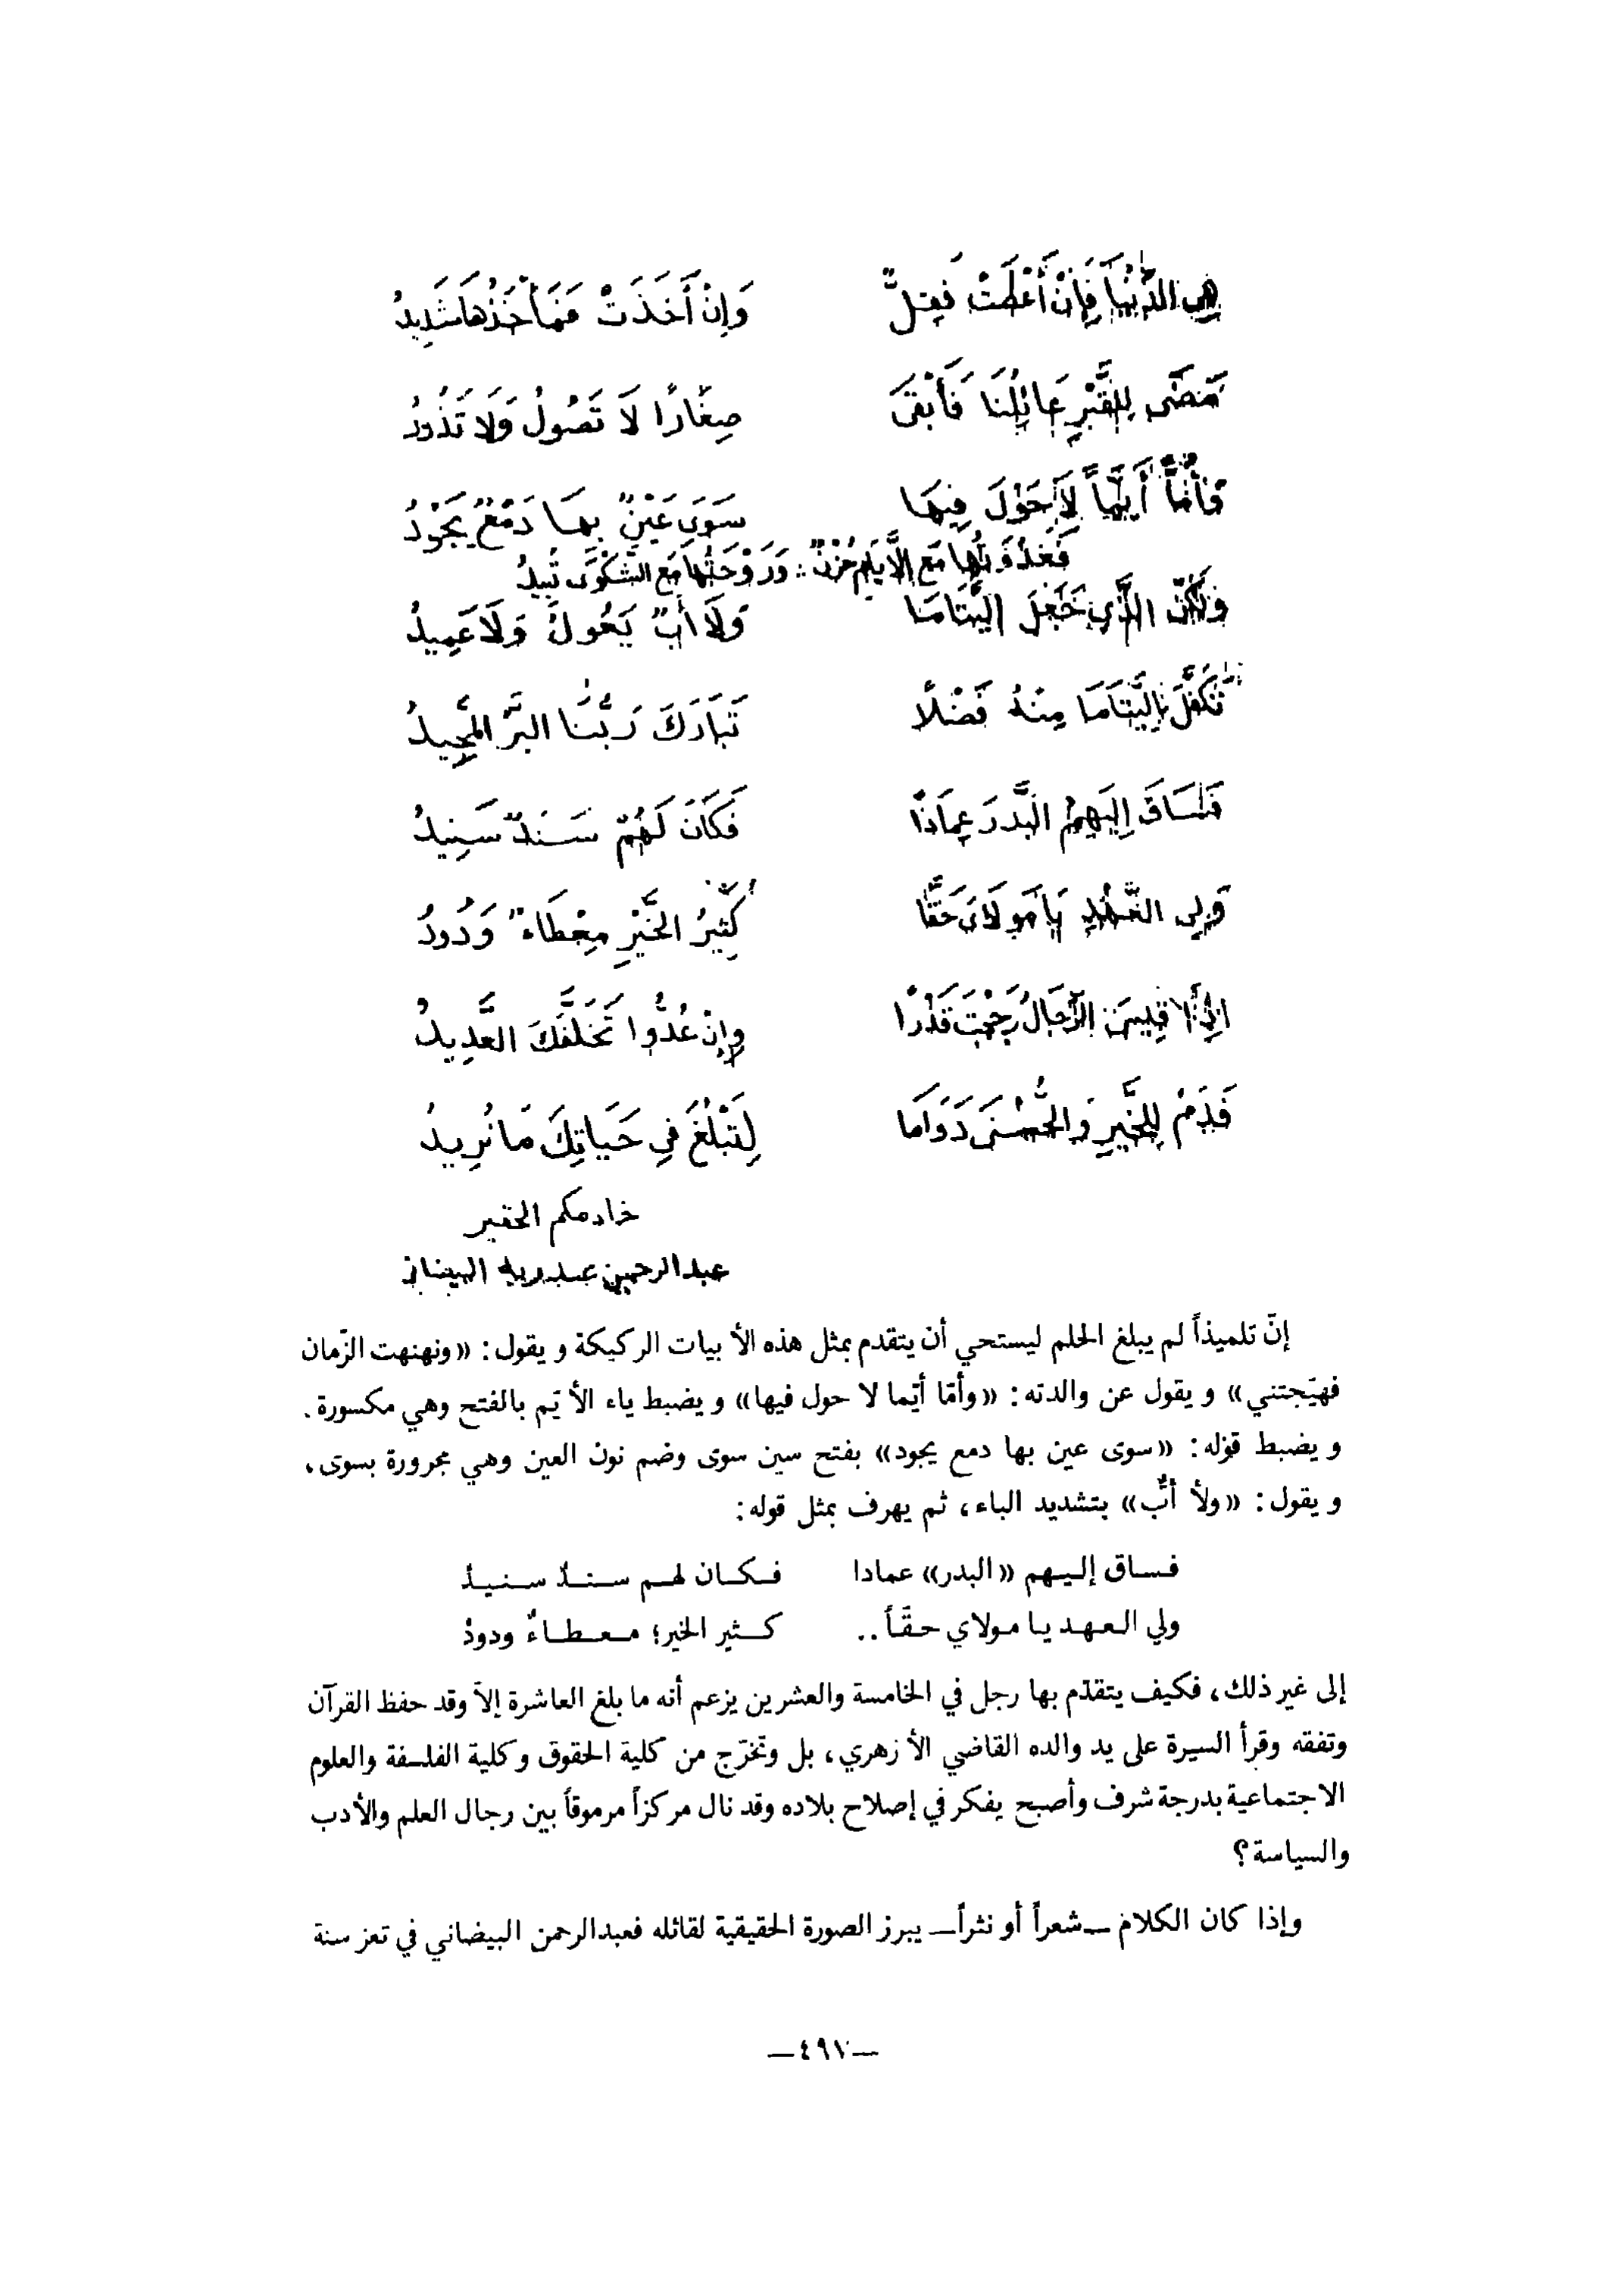 هِيَ الدُّنْيَا فَإِنْ أَعْطَتْ فَقِلٌّ وَإِنْ أَخَذَتْ فَمَأْخَذُهَا شَدِيدُ
مَضَى لِلْقَبْرِ عَائِلُنَا فَأَبْقَى صِغَارًا لَا تَصُولُ وَلَا تَذُودُ
وَأُمًّا أَيَّمًا لَا حَوْلَ فِيهَا سَوَى عَيْنٌ بِهَا دَمْعٌ يَجُوْدُ
فَغَدْوَتُهَا مَعَ الْأَيْتَامِ حُزْنٌ : وَرَوْحَتُهَا مَعَ الشَّكْوَى تَبِيدُ
وَلَكِنَّ الَّذِي جَعَلَ الْيَتَامَا وَلَا أَبٌّ يَعُولُ وَلَا عَمِيدُ
تَكَفَّلَ بِالْيَتَامَا مِنْهُ فَضْلًا تَبَارَكَ رَبُّنَا البَرُّ المَجِيدُ
فَسَاقَ إِلَيْهِمُ الْبَدْرَ عِمَادًا فَكَانَ لَهُمْ سَنَدٌ سَنِيدُ
وَلِي الْعَهْدِ يَا مَوْلَايَ حَقًّا كَثِيرُ الخَيْرِ مِعْطَاءٌ وَدُودُ
إِذَا قِيسَ الرِّجَالُ رَجَحْتَ قَدْرًا وَإِنْ عُدُّوا تَخَلَّفَكَ العَدِيدُ
فَدُمْ لِلْخَيْرِ وَالحُسْنَى دَوَامَا لِتَبْلُغَ فِي حَيَاتِكَ مَا تُرِيدُ
خادمكم الحقير
عبدالرحمن عبدربه البيضاني
إنّ تلميذاً لم يبلغ الحلم ليستحي أن يتقدم بمثل هذه الأبيات الركيكة ويقول: «ونهنهت الزّمان
فهيّجتني» ويقول عن والدته: «وأمّا أيّما لا حول فيها» ويضبط ياء الأيّم بالفتح وهي مكسورة.
ويضبط قوله: «سوى عين بها دمع يجود» بفتح سين سوى وضم نون العين وهي مجرورة بسوى،
ويقول: «ولأ أبٌّ» بتشديد الباء، ثم يهرف بمثل قوله:
فساق إليهم «البدر» عمادا فكان لهم سندٌ سنيدُ
ولي العهد يا مولاي حقّاً.. كثير الخير؛ معطاءٌ ودودُ
إلى غير ذلك، فكيف يتقدّم بها رجل في الخامسة والعشرين يزعم أنه ما بلغ العاشرة إلاّ وقد حفظ القرآن
وتفقه وقرأ السيرة على يد والده القاضي الأزهري، بل وتخرّج من كلية الحقوق وكلية الفلسفة والعلوم
الاجتماعية بدرجة شرف وأصبح يفكر في إصلاح بلاده وقد نال مركزاً مرموقاً بين رجال العلم والأدب
والسياسة؟
وإذا كان الكلام —شعراً أو نثراً— يبرز الصورة الحقيقية لقائله فعبدالرحمن البيضاني في تعز سنة
—٤٩٧—